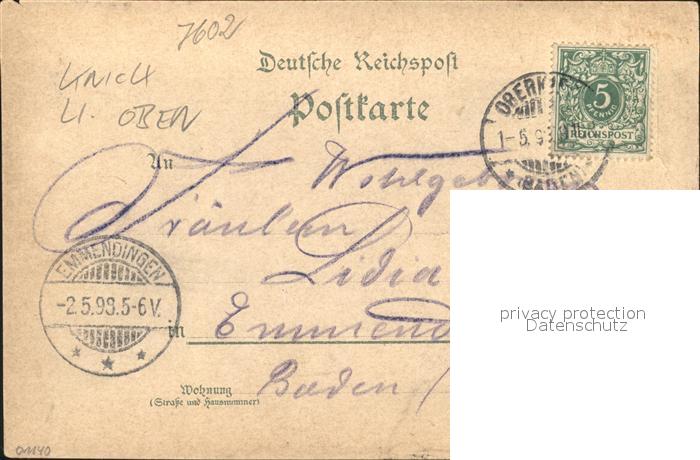 7602
Knick
li. OBEN
Deutsche Reichspost
Postkarte
5
PFENNIG
REICHSPOST
(BADEN)
An
Wohlgeb
Fräulein
Lidia
in Emmend
Baden
EMMENDINGEN
-2.5.98.5-6V.
Wohnung
(Straße und Hausnummer)
privacy protection
Datenschutz
01140